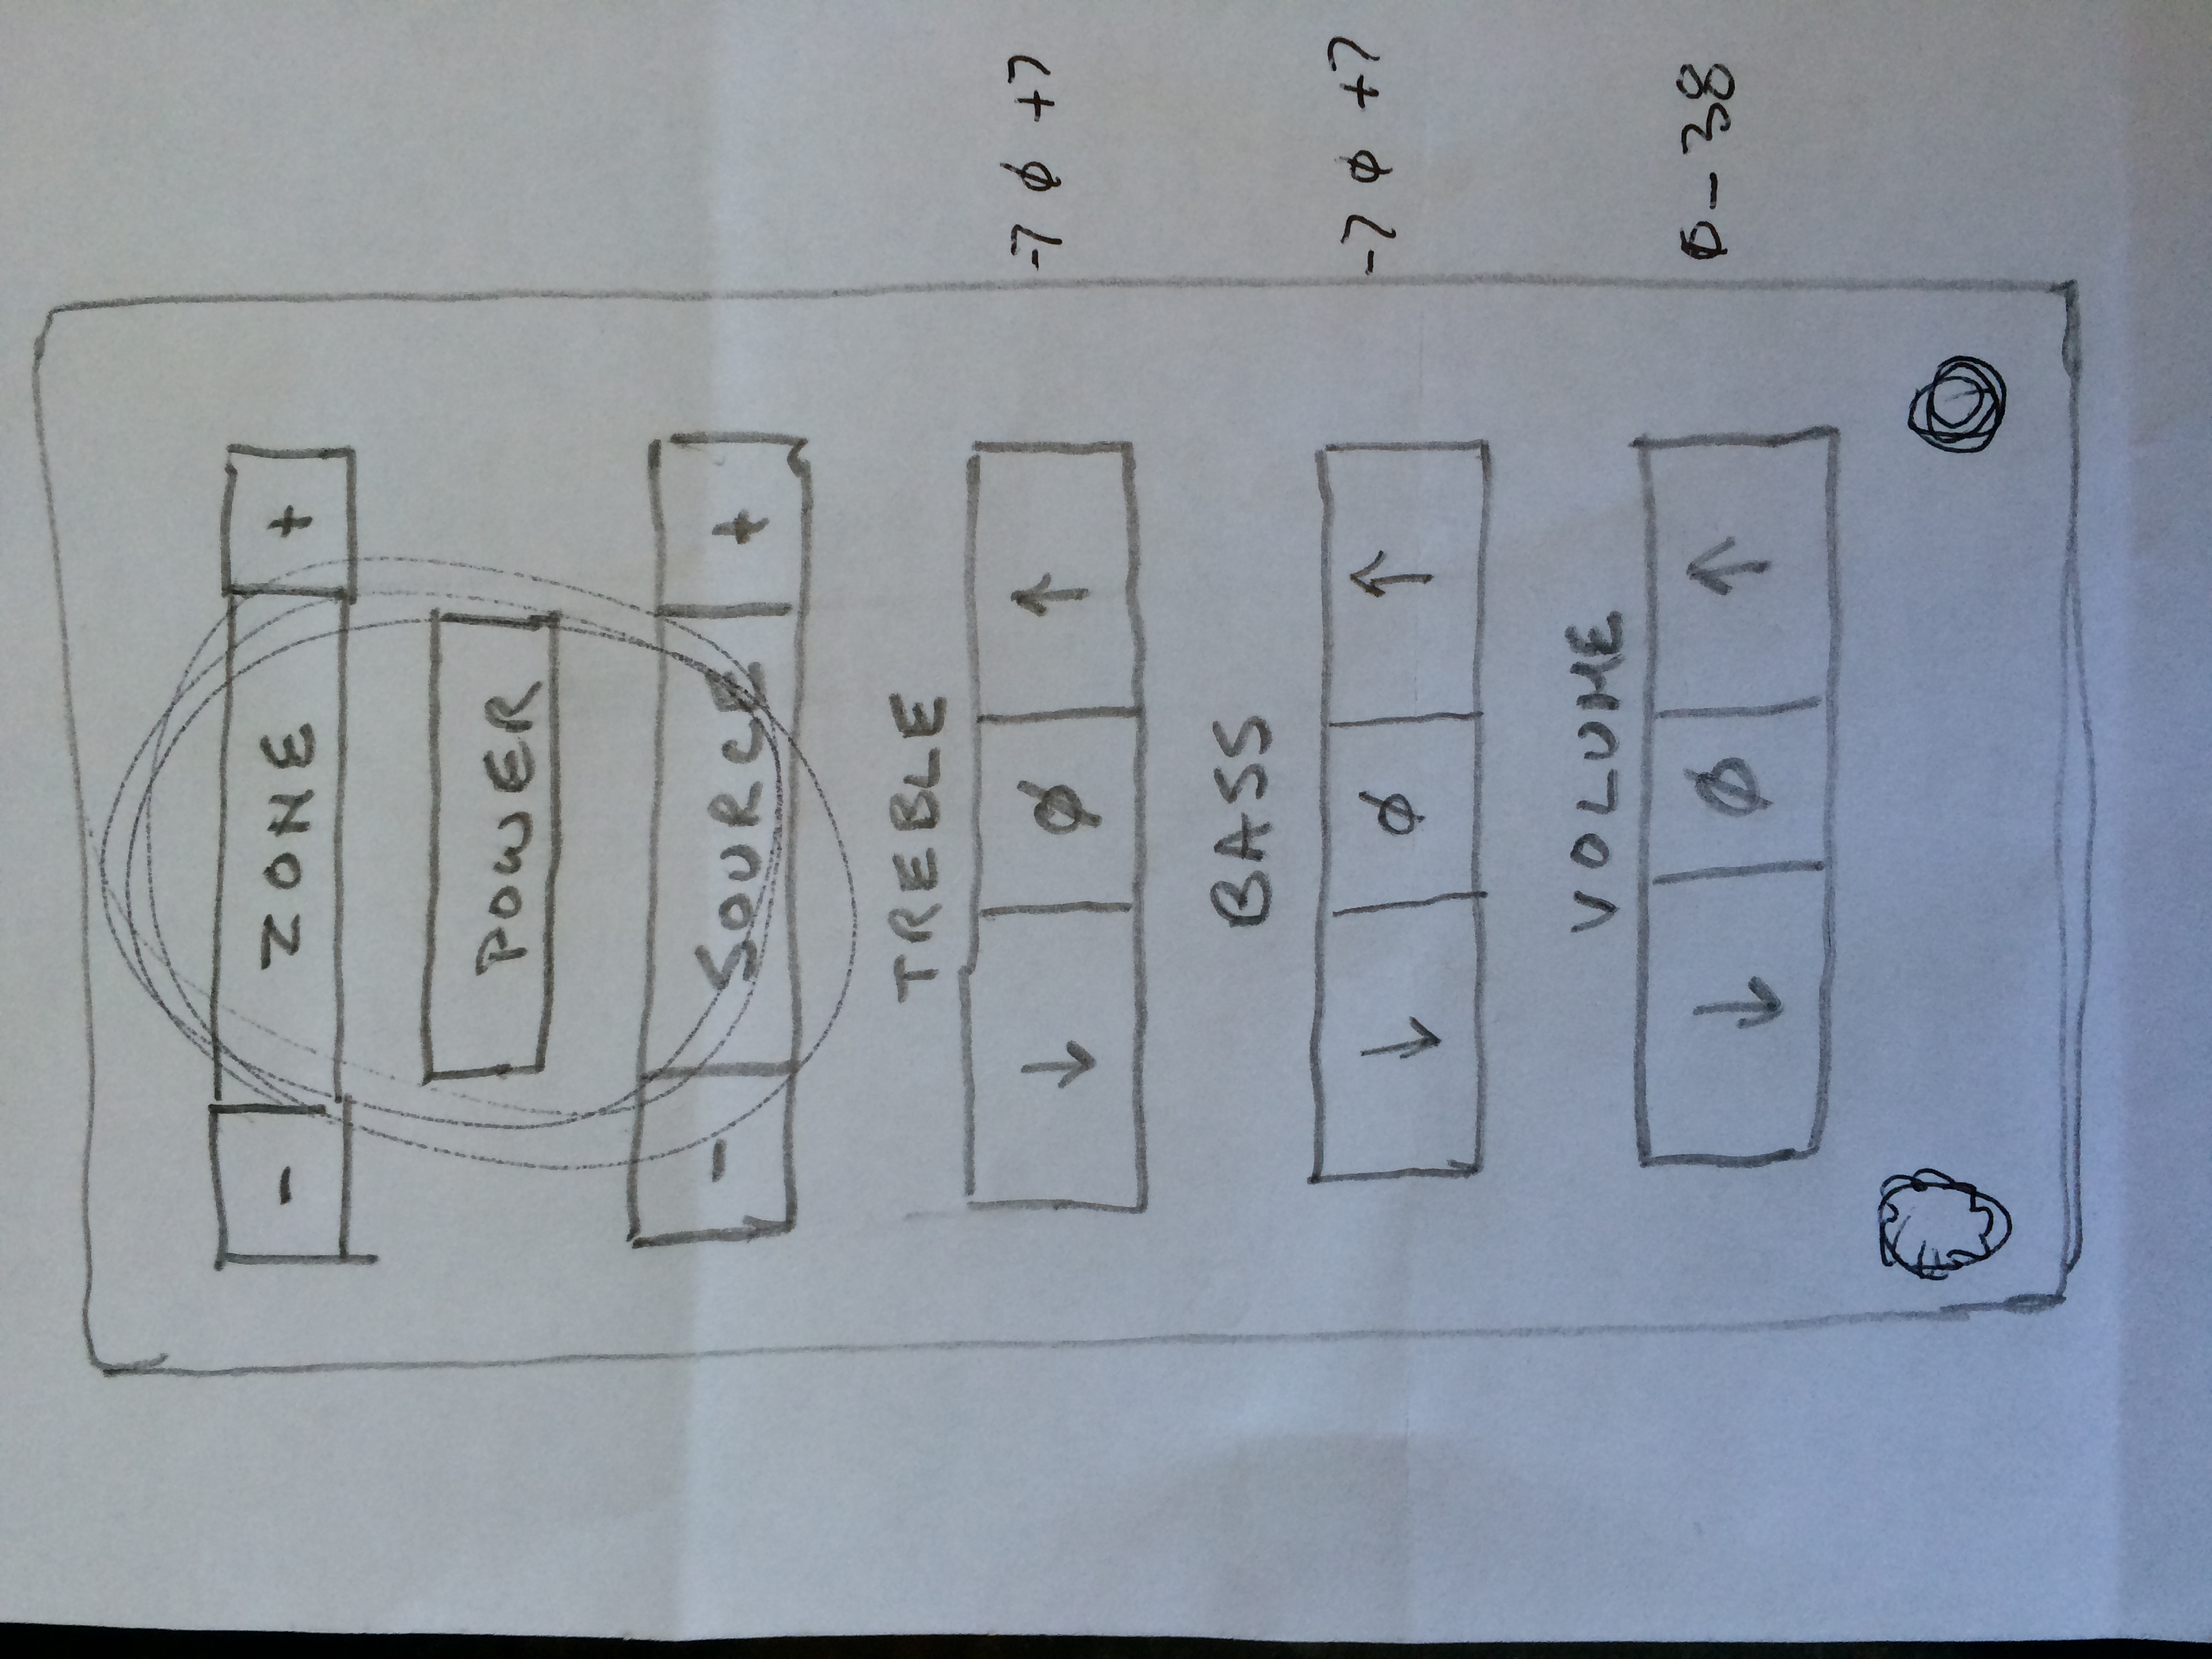 - ZONE +
POWER
- SOURCE +
TREBLE
↓ ϕ ↑ -7 ϕ +7
BASS
↓ ϕ ↑ -7 ϕ +7
VOLUME
↓ ϕ ↑ 0-38